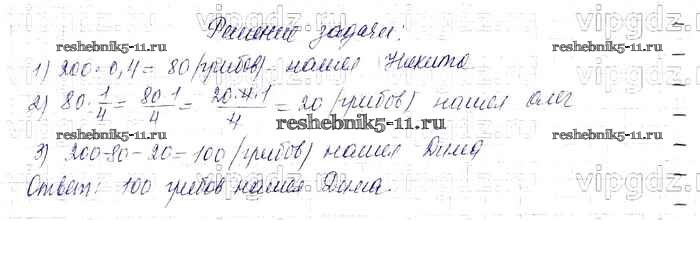 Решение задачи:
1) 200 · 0,4 = 80 (грибов) - нашел Никита
2) 80 · 1/4 = 80·1/4 = 20·4·1/4 = 20 (грибов) нашел олег
3) 200-80-20=100 (грибов) нашел Дима
Ответ: 100 грибов нашел Дима.
reshebnik5-11.ru
reshebnik5-11.ru
reshebnik5-11.ru
reshebnik5-11.ru
reshebnik5-11.ru
vipgdz.ru
vipgdz.ru
vipgdz.ru
vipgdz.ru
vipgdz.ru
vipgdz.ru